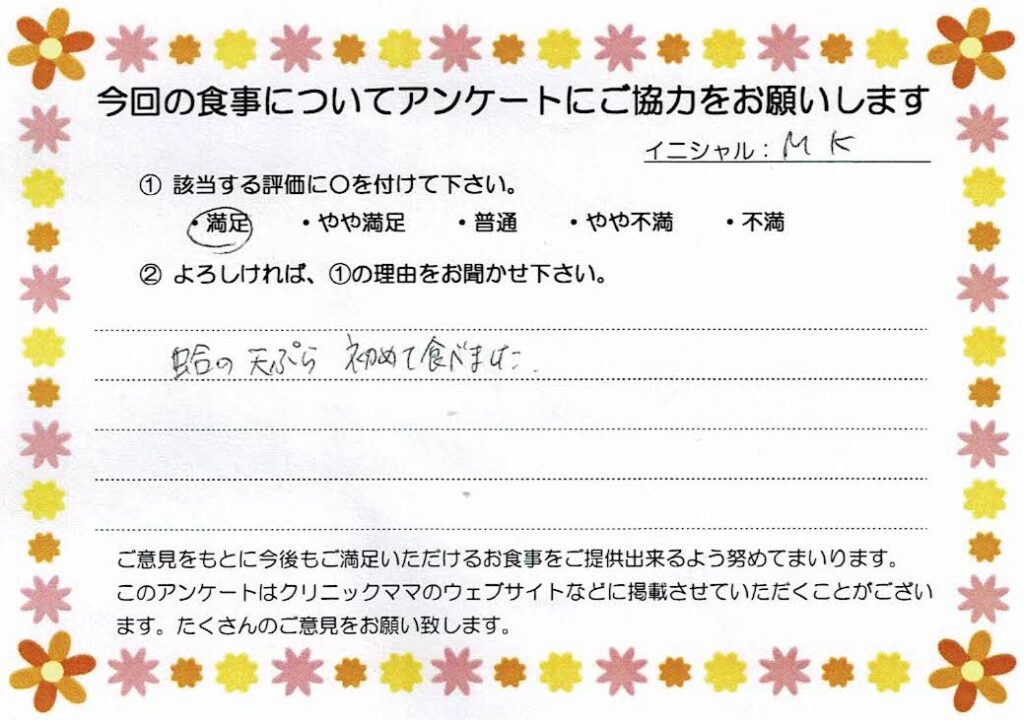 今回の食事についてアンケートにご協力をお願いします
イニシャル：M K
① 該当する評価に〇を付けて下さい。
・満足 ・やや満足 ・普通 ・やや不満 ・不満
② よろしければ、①の理由をお聞かせ下さい。
蛤の天ぷら 初めて食べました.
ご意見をもとに今後もご満足いただけるお食事をご提供出来るよう努めてまいります。
このアンケートはクリニックママのウェブサイトなどに掲載させていただくことがござい
ます。たくさんのご意見をお願い致します。